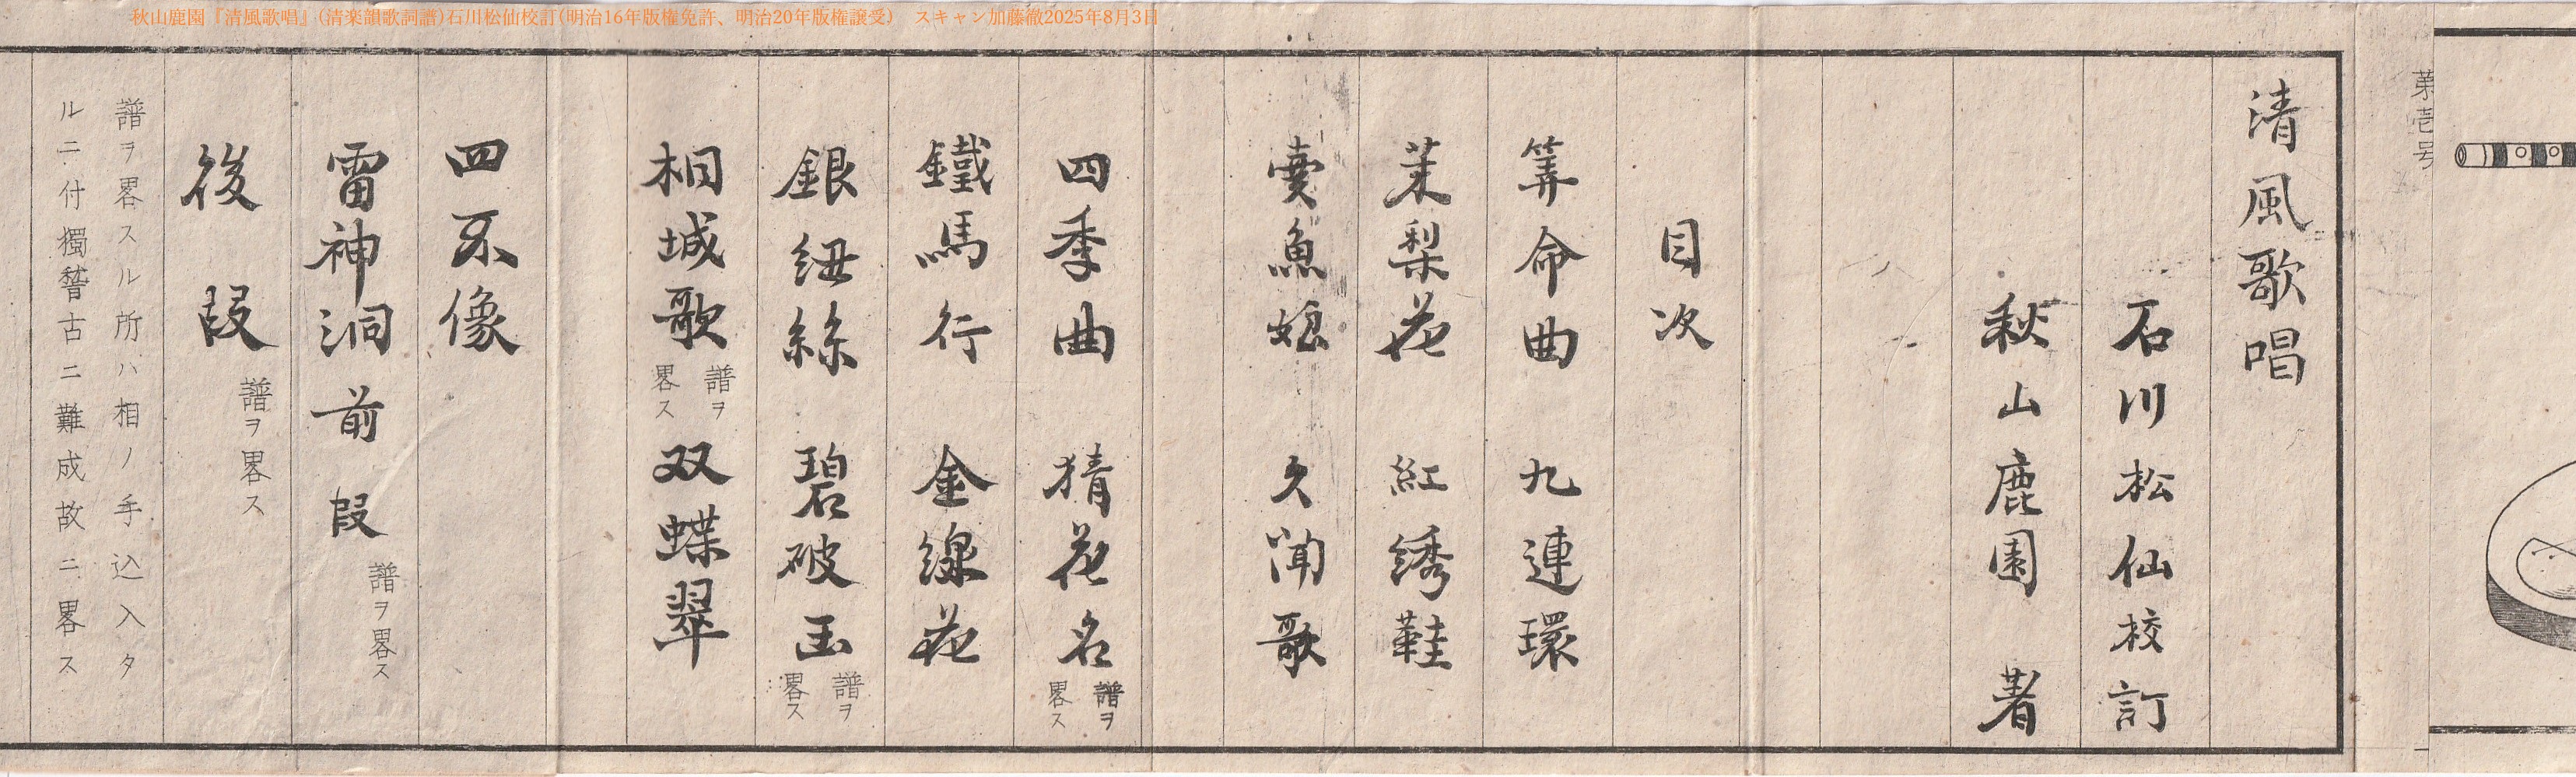 秋山鹿園『清風歌唱』(清楽韻歌詞譜)石川松仙校訂(明治16年版権免許、明治20年版権譲受)　スキャン加藤徹2025年8月3日
第壱号
清風歌唱
石川松仙校訂
秋山鹿園　著
目次
筭命曲　九連環
茉梨花　紅綉鞋
賣魚娘　久聞歌
四季曲　猜花名 譜ヲ畧ス
鐵馬行　金線花
銀紐絲　碧破玉 譜ヲ畧ス
相城歌 譜ヲ畧ス 双蝶翠
四不像
雷神洞前段 譜ヲ畧ス
後段 譜ヲ畧ス
譜ヲ畧スル所ハ相ノ手込入タ
ルニ付獨稽古ニ難成故ニ畧ス